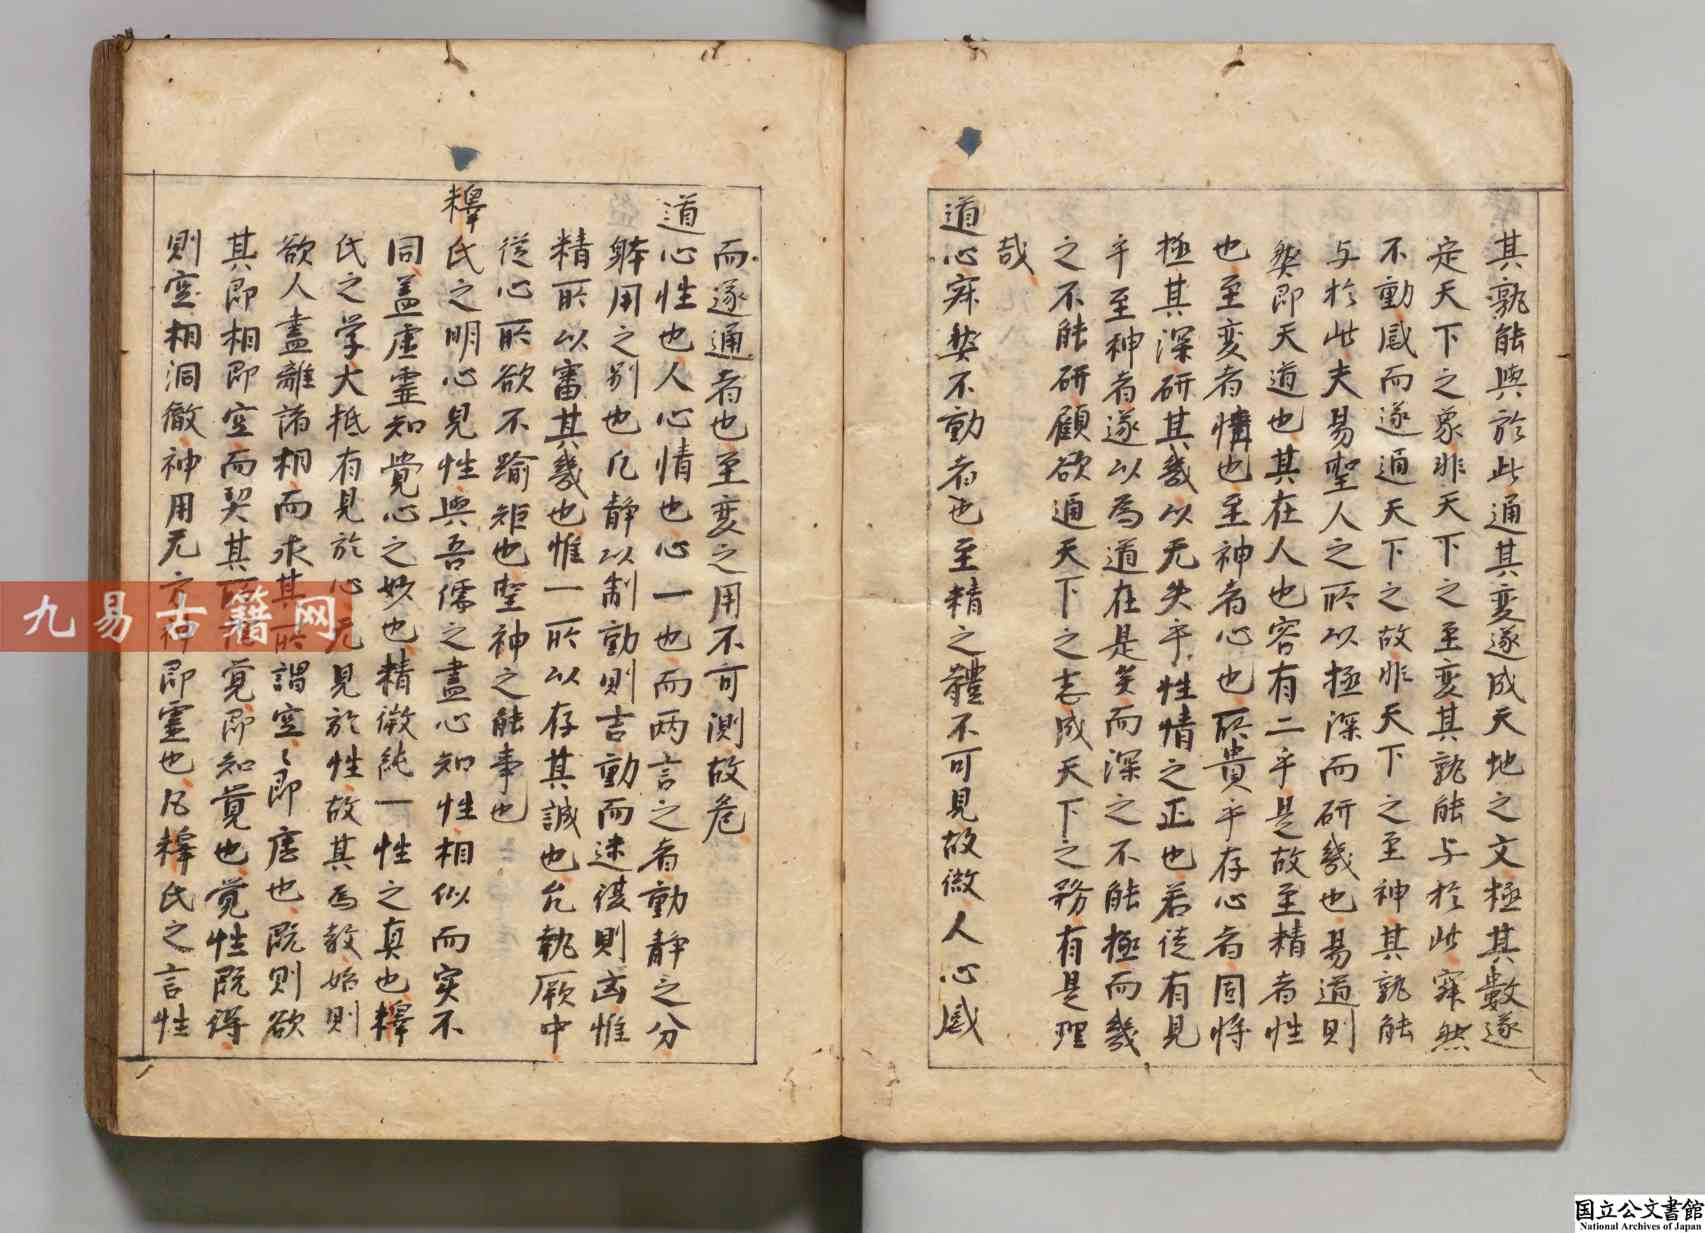 其孰能與於此通其变遂成天地之文極其數遂
定天下之象非天下之至变其孰能与於此寂然
不動感而遂通天下之故非天下之至神其孰能
与於此夫易聖人之所以極深而研幾也易道則
奥即天道也其在人也容有二乎是故至精者性
也至变者情也至神者心也所貴乎存心者固将
極其深研其幾以无失乎性情之正也若徒有見
乎至神者遂以為道在是矣而深之不能極而幾
之不能研顧欲通天下之志成天下之務有是理
哉
道心寂然不動者也至精之體不可見故微人心感
而遂通者也至变之用不可測故危
道心性也人心情也心一也而两言之者動静之分
體用之别也凡静以制動則吉動而迷復則凶惟
精所以審其幾也惟一所以存其誠也允執厥中
従心所欲不踰矩也聖神之能事也
釋氏之明心見性與吾儒之盡心知性相似而実不
同盖虚霊知覺心之妙也精微純一性之真也釋
氏之学大抵有見於心无見於性故其為教始則
欲人盡離諸相而求其所謂空〻即虚也既則欲
其即相即空而契其所覚即知覚也覚性既得
則空相洞徹神用无方神即霊也凡釋氏之言性
九易古籍网
国立公文書館
National Archives of Japan